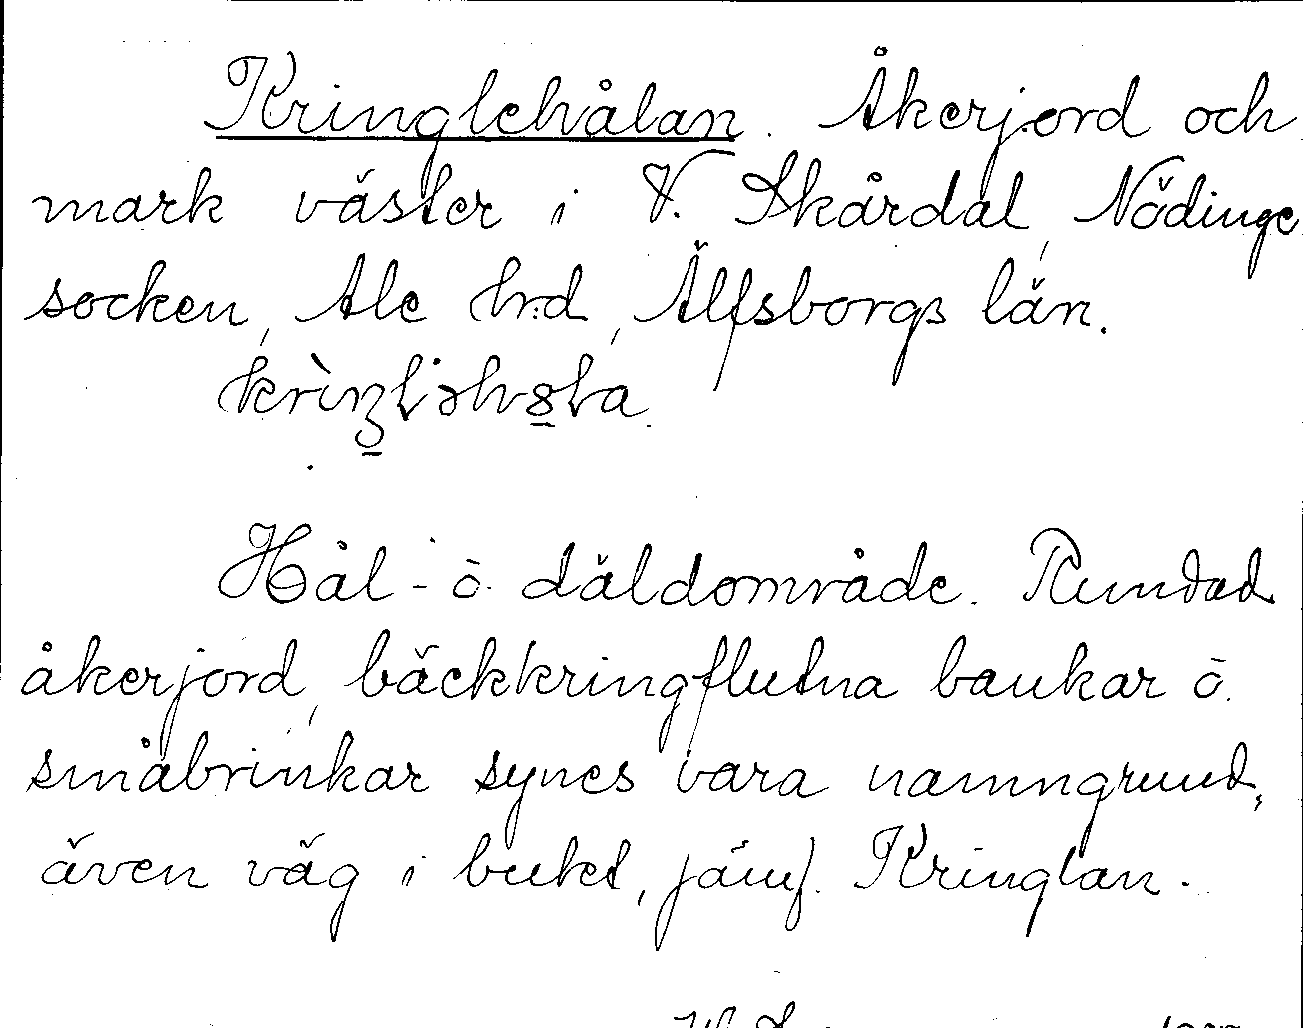 Kringlehålan. Åkerjord och
mark väster i V. Skårdal, Nödinge
socken, Ale hrd, Älfsborgs län.
Hål- o. däldområde. Rundad
åkerjord, bäckkringflutna bankar o.
småbrinkar synes vara namngrund,
även väg i bukt, jämf. Kringlan.